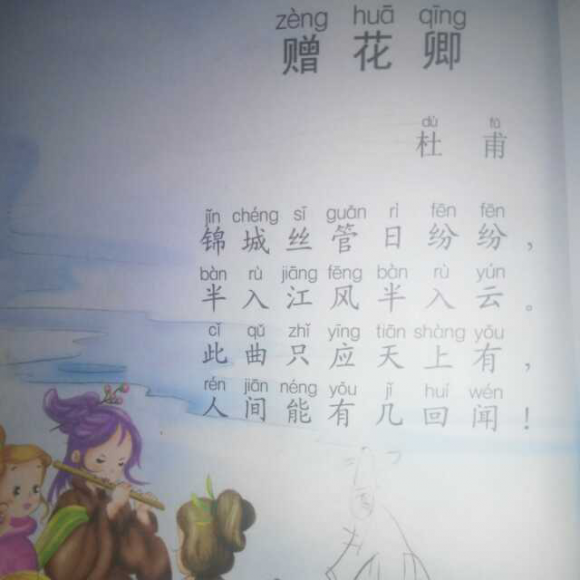 zèng huā qīng
赠花卿
dù fǔ
杜甫
jǐn chéng sī guǎn rì fēn fēn
锦城丝管日纷纷，
bàn rù jiāng fēng bàn rù yún
半入江风半入云。
cǐ qǔ zhǐ yīng tiān shàng yǒu
此曲只应天上有，
rén jiān néng yǒu jǐ huí wén
人间能有几回闻！